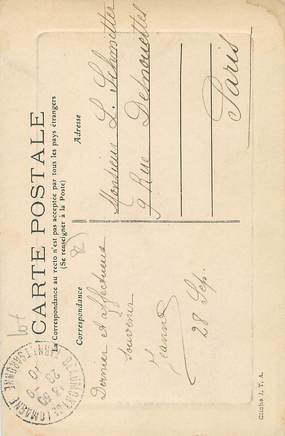 CARTE POSTALE
La Correspondance au recto n'est pas acceptée par tous les pays étrangers
(Se renseigner à la Poste)
Correspondance
Adresse
Dernier et affectueux
souvenir
Jeanne
28 Sep.
Monsieur L. Schmitter
9 Rue Desnouettes
Paris
lot
BEAUMONT-DE-LOMAGNE
TARN-ET-GARONNE
Cliché J. T. A.